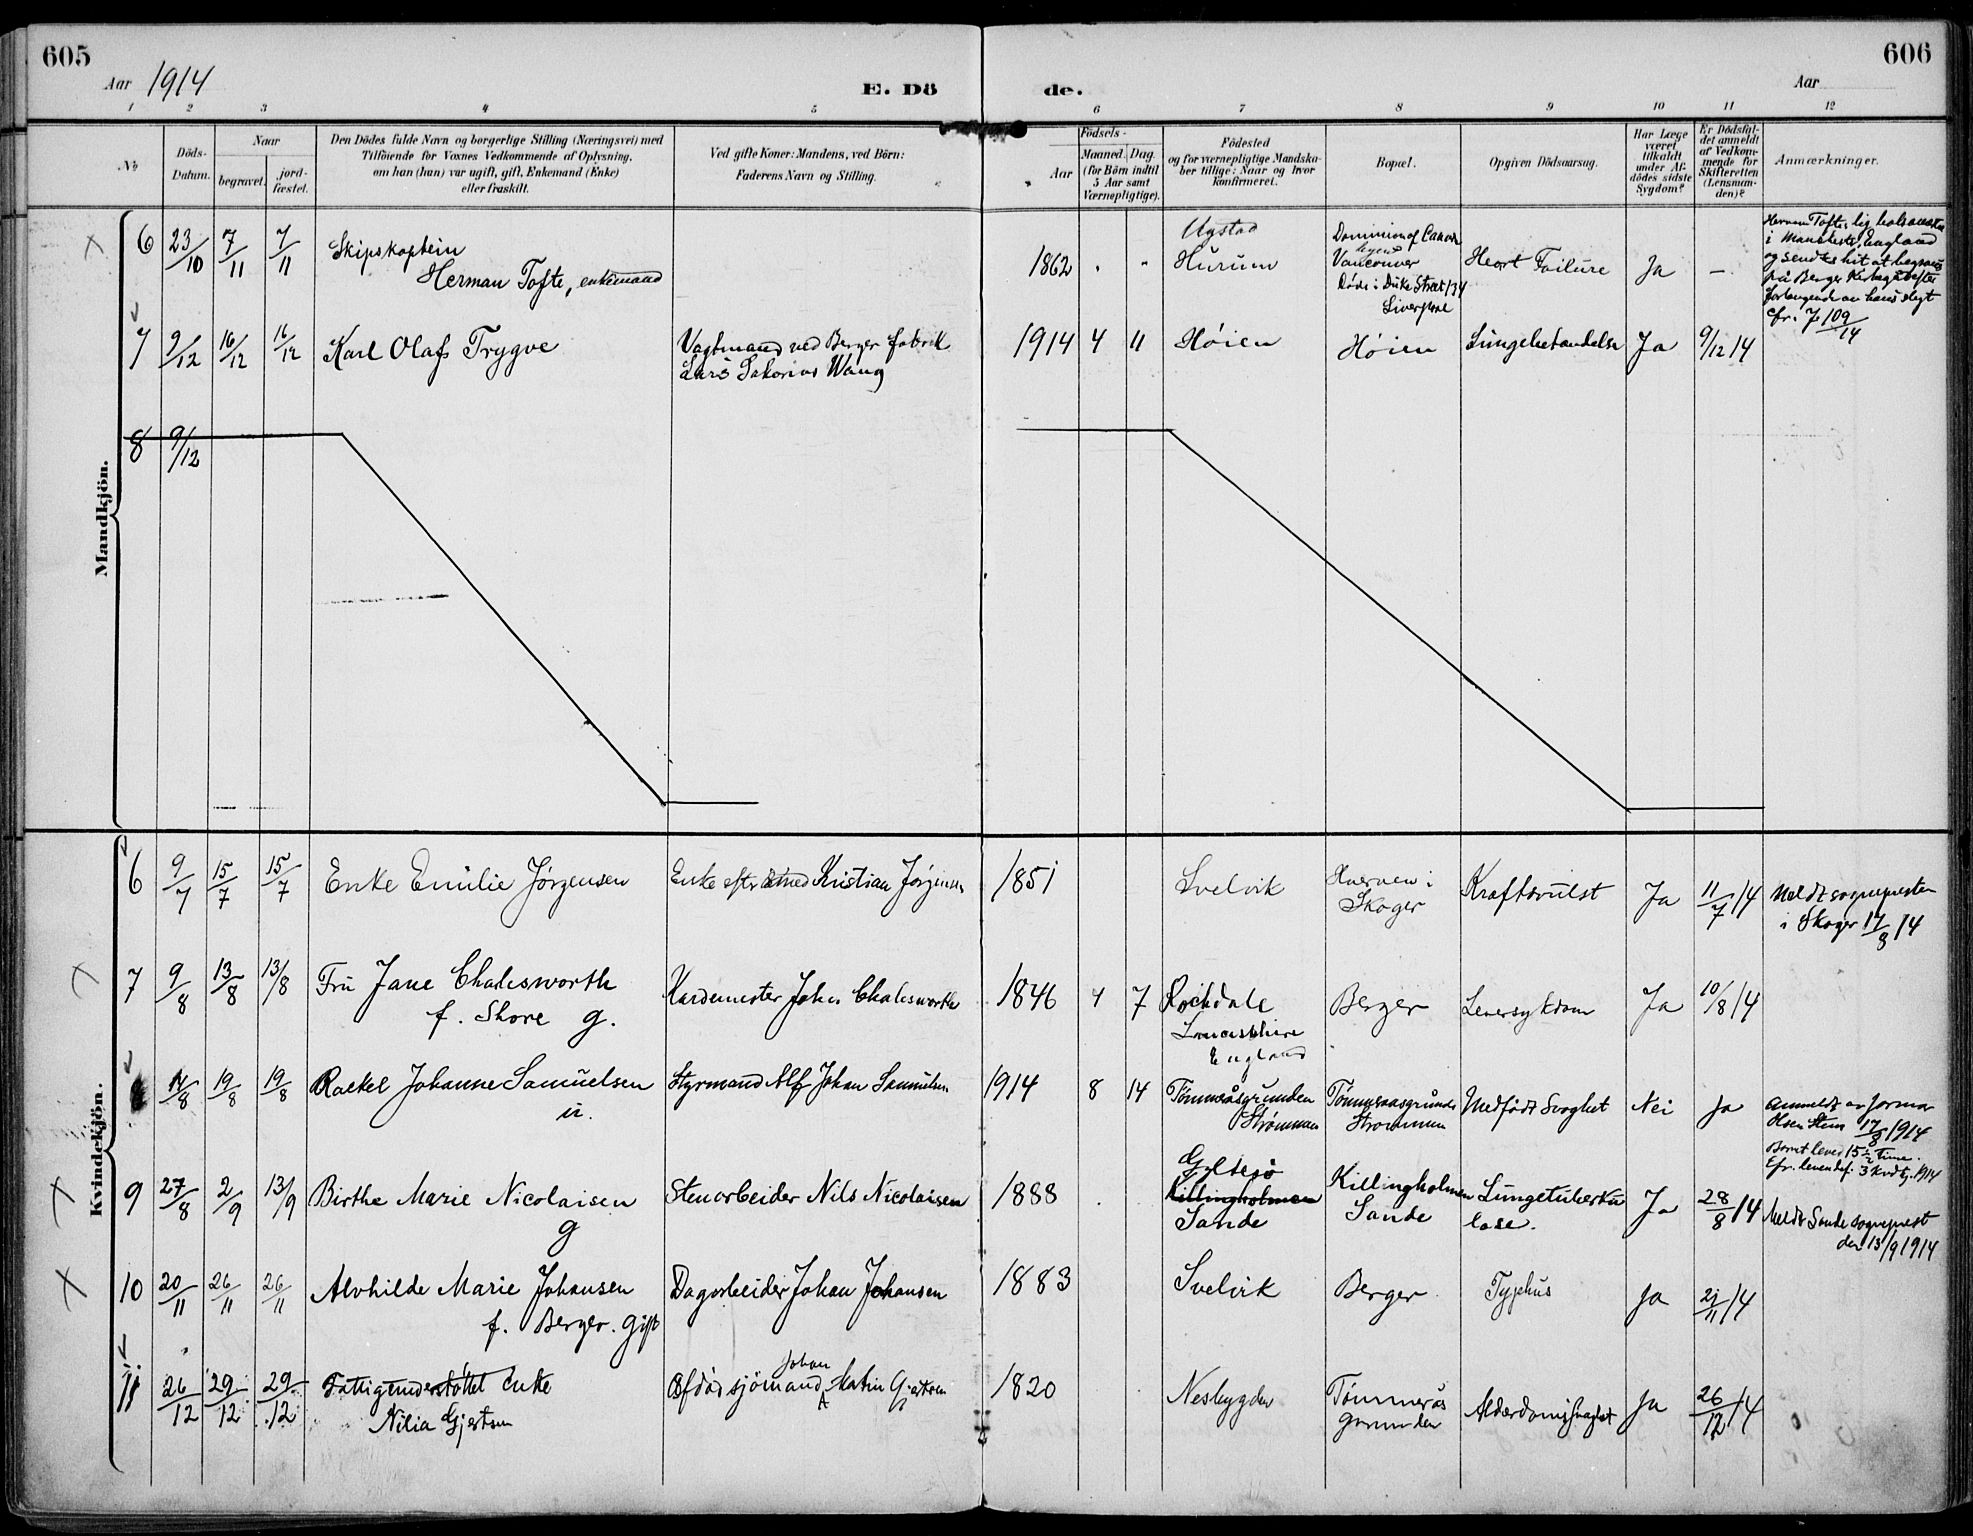 605
606
Aar 1914
E. Dö
de.
Aar
1 2 3 4 5 6 7 8 9 10 11 12
No
Döds-
Datum.
Naar
begravet.
jord-
fæstet.
Den Dödes fulde Navn og borgerlige Stilling (Næringsvei) med
Tilföiende for Voxnes Vedkommende af Oplysning,
om han (hun) var ugift, gift, Enkemand (Enke)
eller fraskilt.
Ved gifte Koner: Mandens, ved Börn:
Faderens Navn og Stilling.
Födsels-
Aar
Maaned. Dag.
(for Börn indtil
5 Aar samt
Værnepligtige).
Födested
og for værnepligtige Mandska-
ber tillige: Naar og hvor
konfirmeret.
Bopæl.
Opgiven Dödsaarsag.
Har Læge
været
tilkaldt
under Af-
dödes sidste
Sygdom?
Er Dödsfal-
det anmeldt
af Vedkom-
mende for
Skifteretten
(Lensman-
den)?
Anmærkninger.
Mandkjön.
6 23/10 7/11 7/11
Skipskaptein
Herman Tofte, enkemand
1862 " "
Hurum
Dominion of Canada
Vancouver
Døde i Duke Street 134
Liverpool
Heart Failure
Ja —
Herman Toftes lig
i Manchester, England
og sendtes hit at begraves
på Berger Kirkegård efter
forlangende av hans slegt
cfr. J 109/14
7 9/12 16/12 16/12 Karl Olaf Trygve
Vagtmand ved Berger fabrik
Lars Sakarias Wang
1914 4 11 Høien Høien Lungebetændelse Ja 9/12 14
8 9/12
Kvindekjön.
6 9/7 15/7 15/7 Enke Emilie Jørgensen
Enke efter Kristian Jørgensen
1851 Svelvik
Hverven i
Skoger
Kraftsvulst Ja 11/7 14
Meldt sognepresten
i Skoger
7 9/8 13/8 13/8 Fru Jane Chalesworth
f. Shore g.
Kardemester John Chalesworth
1846 4 7 Rochdale
Lancashire
England
Berger Leversykdom Ja 10/8 14
14/8 19/8 19/8 Rakel Johanne Samuelsen
u.
Styrmand Alf Johan Samuelsen
1914 8 14 Tømmeråsgrunden
Strømmen
Tømmeraasgrunden
Strømmen
Medfødt Svaghet Nei Ja
Anmeldt av Jormor
17/8 1914
Barnet leved 15 1/2 time.
9 27/8 2/9 13/9 Birthe Marie Nicolaisen
g
Stenarbeider Nils Nicolaisen
1888
Killingholmen
Sande
Killingholmen
Sande
Lungetuberku
lose.
Ja 28/8 14
Meldt Sande sogneprest
den 13/9 1914
10 20/11 26/11 26/11 Alvhilde Marie Johansen
f. Berger. Gift
Dagarbeider Johan Johansen
1883 Svelvik Berger Typhus Ja 21/11 14
11 26/12 29/12 29/12 Fattigunderstøttet Enke
Nilia Gjertsen
Johan
Afdød sjömand Martin Gjertsen
1820 Nesbygden
Tömmerås
grunden
Alderdomssvaghet Ja 26/12 14